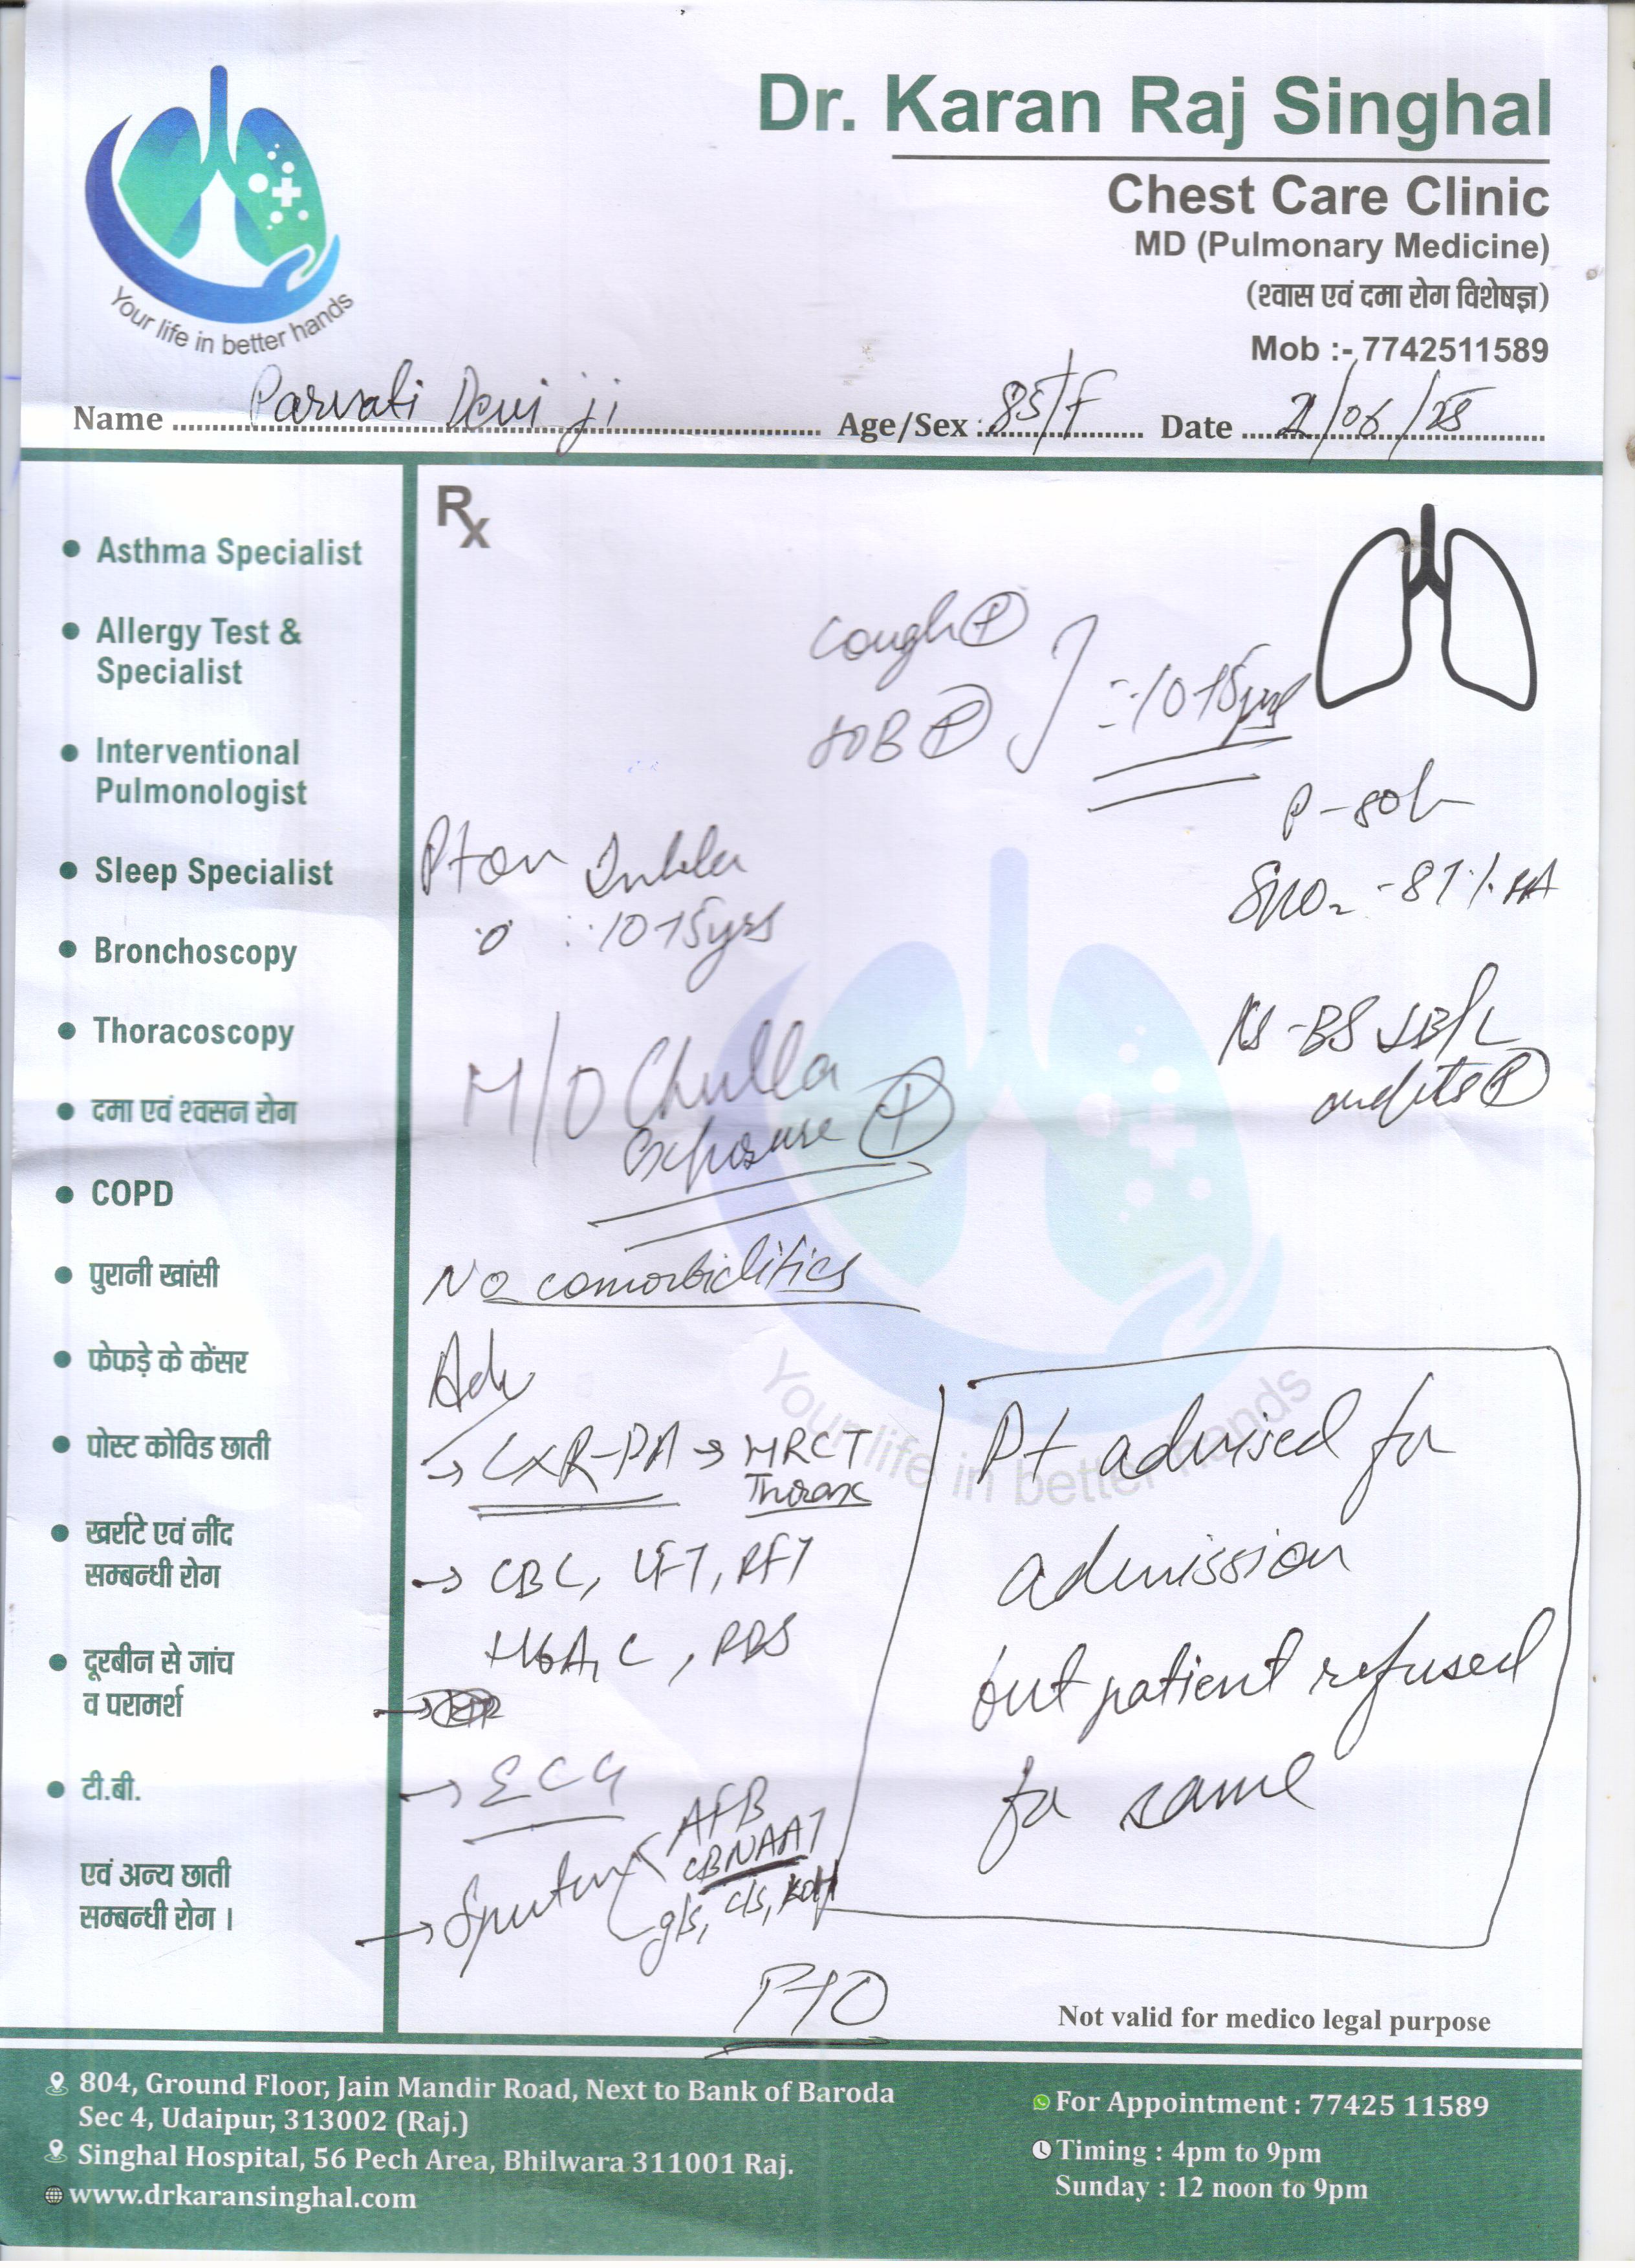 Your life in better hands
Dr. Karan Raj Singhal
Chest Care Clinic
MD (Pulmonary Medicine)
(श्वास एवं दमा रोग विशेषज्ञ)
Mob :- 7742511589
Name Parvati Devi ji Age/Sex : 85/F Date 21/06/25
Rx
• Asthma Specialist
• Allergy Test &
Specialist
• Interventional
Pulmonologist
• Sleep Specialist
• Bronchoscopy
• Thoracoscopy
• दमा एवं श्वसन रोग
• COPD
• पुरानी खांसी
• फेफड़े के केंसर
• पोस्ट कोविड छाती
• खर्राटे एवं नींद
सम्बन्धी रोग
• दूरबीन से जांच
व परामर्श
• टी.बी.
एवं अन्य छाती
सम्बन्धी रोग ।
Cough (P)
SOB (P)
10-15 yrs
P-80
SPO2 - 87% RA
RS - BS B/L
(P)
Pt on Inhaler
10-15 yrs
H/O Chulla
exposure (+)
No comorbidities
Adv
→ CXR-PA → HRCT
Thorax
→ CBC, LFT, RFT
HbA1C, RBS
→ ECG
→ Sputum AFB
CBNAAT
g/s, c/s, KOH
Pt advised for
admission
but patient refused
for same
PTO
Your life in better hands
Not valid for medico legal purpose
804, Ground Floor, Jain Mandir Road, Next to Bank of Baroda
Sec 4, Udaipur, 313002 (Raj.)
Singhal Hospital, 56 Pech Area, Bhilwara 311001 Raj.
www.drkaransinghal.com
For Appointment : 77425 11589
Timing : 4pm to 9pm
Sunday : 12 noon to 9pm